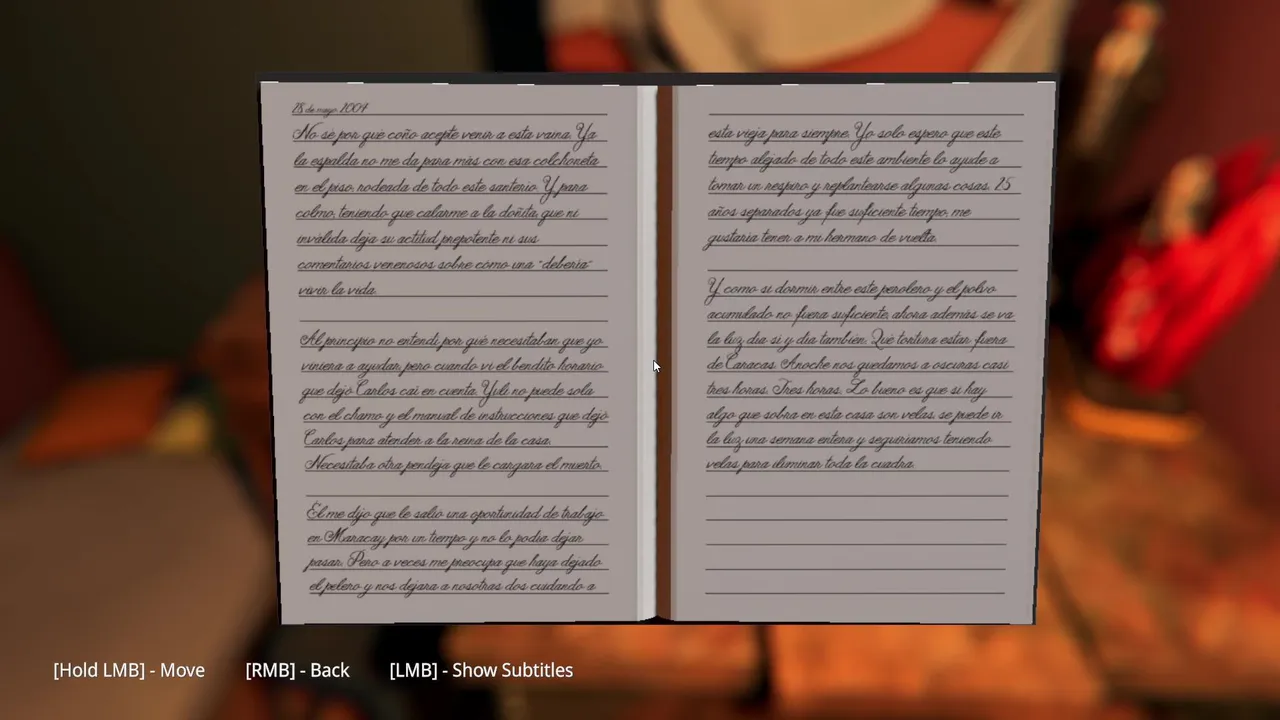 28 de mayo, 2004
No sé por qué coño acepté venir a esta vaina. Ya
la espalda no me da para más con esa colchoneta
en el piso, rodeada de todo este santerío. Y para
colmo, teniendo que calarme a la doñita, que ni
inválida deja su actitud prepotente ni sus
comentarios venenosos sobre cómo una "debería"
vivir la vida.
Al principio no entendí por qué necesitaban que yo
viniera a ayudar, pero cuando vi el bendito horario
que dejó Carlos caí en cuenta. Yuli no puede sola
con el chamo y el manual de instrucciones que dejó
Carlos para atender a la reina de la casa.
Necesitaba otra pendeja que le cargara el muerto.
Él me dijo que le salió una oportunidad de trabajo
en Maracay por un tiempo y no lo podía dejar
pasar. Pero a veces me preocupa que haya dejado
el pelero y nos dejara a nosotras dos cuidando a
esta vieja para siempre. Yo solo espero que este
tiempo alejado de todo este ambiente lo ayude a
tomar un respiro y replantearse algunas cosas. 25
años separados ya fue suficiente tiempo, me
gustaría tener a mi hermano de vuelta.
Y como si dormir entre este perolero y el polvo
acumulado no fuera suficiente, ahora además se va
la luz día sí y día también. Qué tortura estar fuera
de Caracas. Anoche nos quedamos a oscuras casi
tres horas. Tres horas. Lo bueno es que si hay
algo que sobra en esta casa son velas, se puede ir
la luz una semana entera y seguiríamos teniendo
velas para iluminar toda la cuadra.
[Hold LMB] - Move [RMB] - Back [LMB] - Show Subtitles